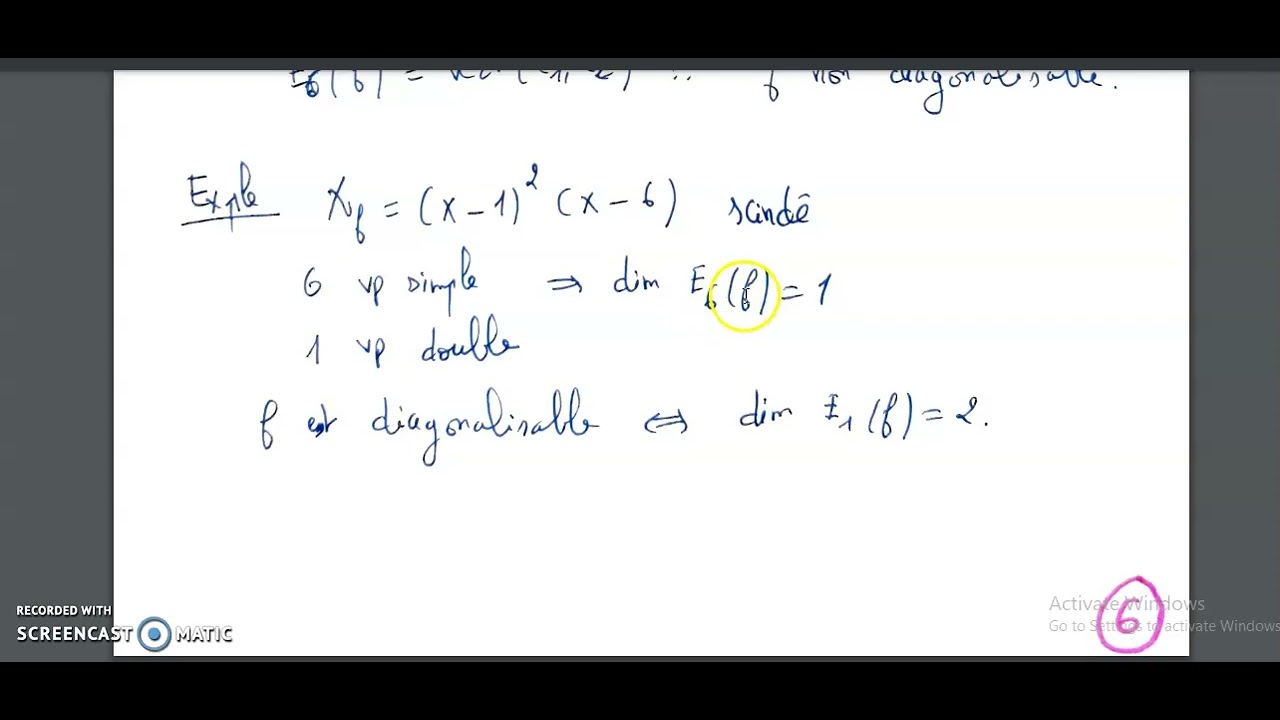 f non diagonalisable.
Exple χf = (x-1)² (x-6) scindé
6 vp simple ⇒ dim E6(f) = 1
1 vp double
f est diagonalisable ⇔ dim E1(f) = 2.
6
Activate Windows
Go to Settings to activate Windows
RECORDED WITH
SCREENCAST MATIC